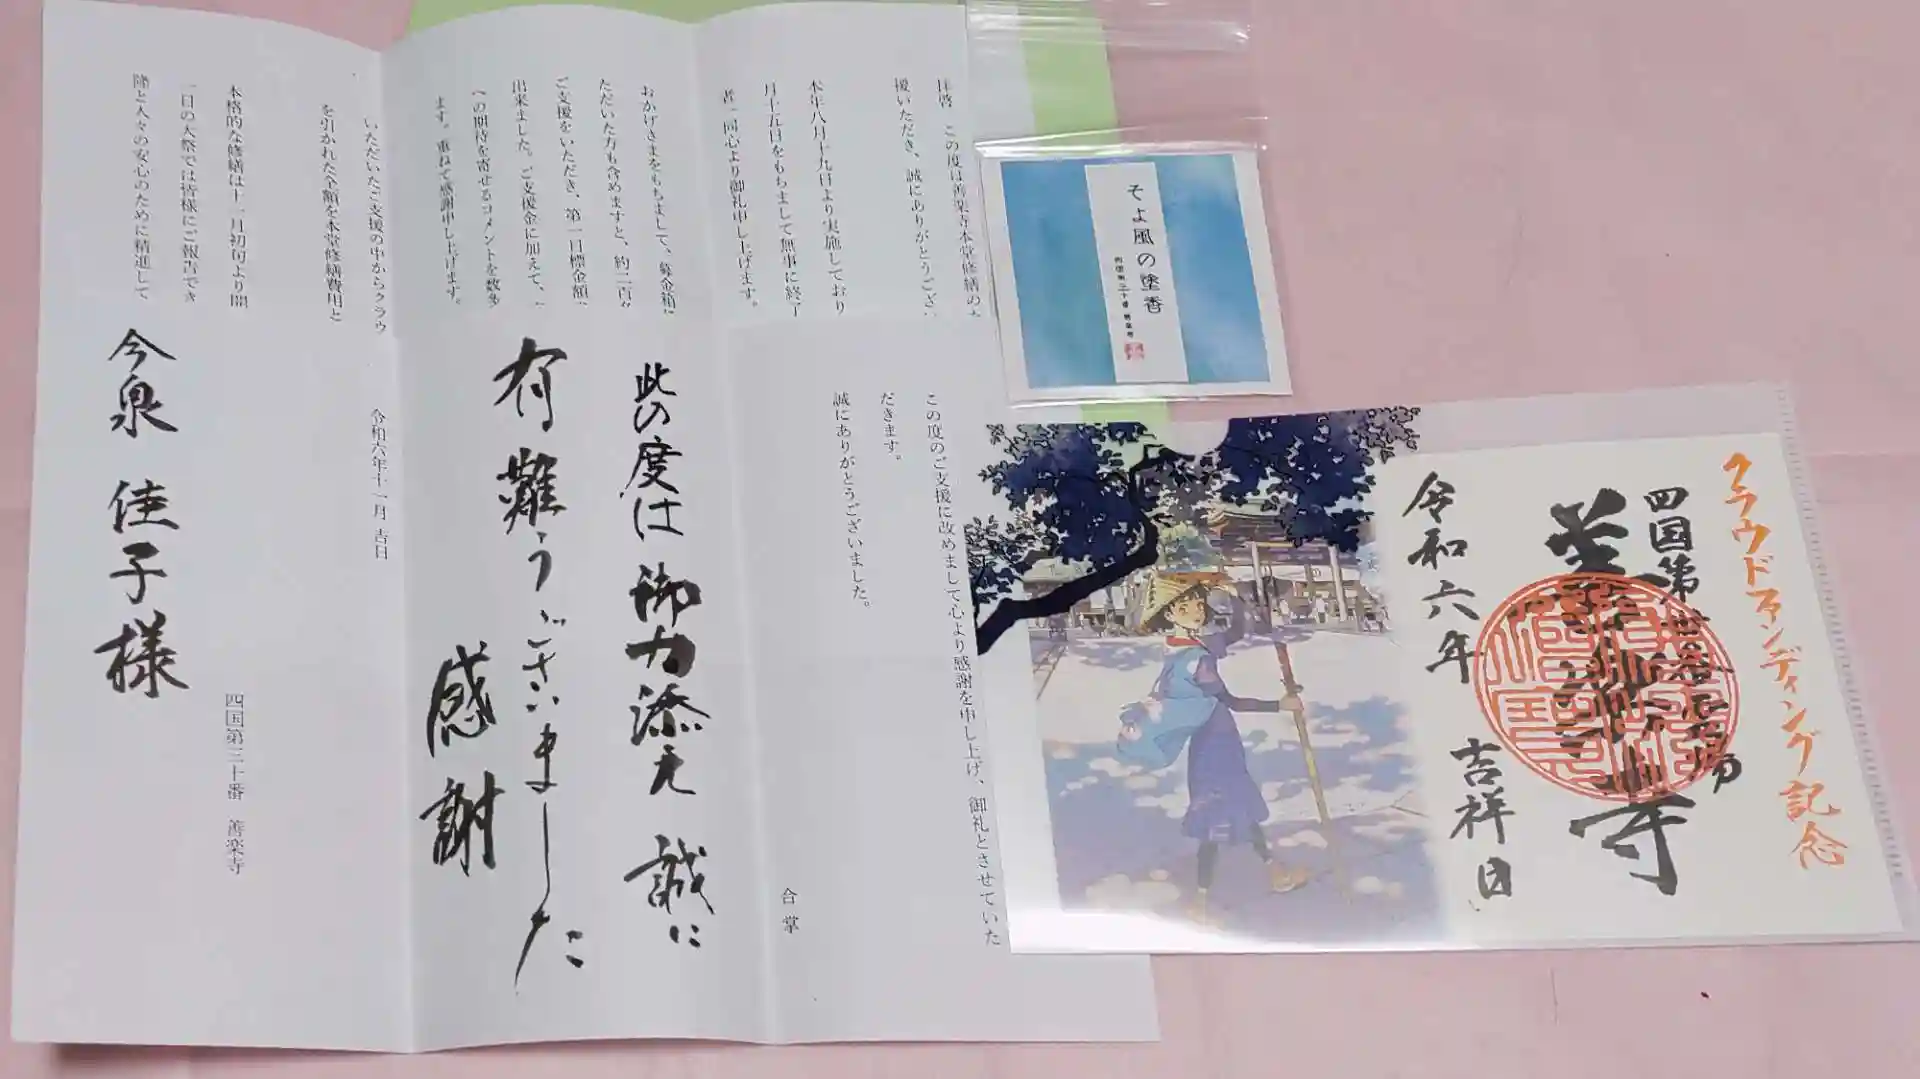 拝啓 この度は善楽寺本堂修繕の
援いただき、誠にありがとうござい
本年八月十九日より実施しており
月十五日をもちまして無事に終了
者一同心より御礼申し上げます。
おかげさまをもちまして、募金箱に
ただいた方も含めますと、約二百名
ご支援をいただき、第一目標金額
出来ました。ご支援金に加えて、
への期待を寄せるコメントを数多
ます。重ねて感謝申し上げます。
いただいたご支援の中からクラウ
を引かれた全額を本堂修繕費用と
本格的な修繕は十一月初旬より開
一日の大祭では皆様にご報告でき
隆と人々の安心のために精進して
この度のご支援に改めまして心より感謝を申し上げ、御礼とさせていた
だきます。
誠にありがとうございました。
合掌
此の度は御力添え誠に
有難うございました
感謝
令和六年十一月吉日
四国第三十番 善楽寺
今泉 佳子様
そよ風の塗香
四国第三十番 善楽寺
クラウドファンディング記念
四国第卅番霊場
善楽寺
令和六年 吉祥日